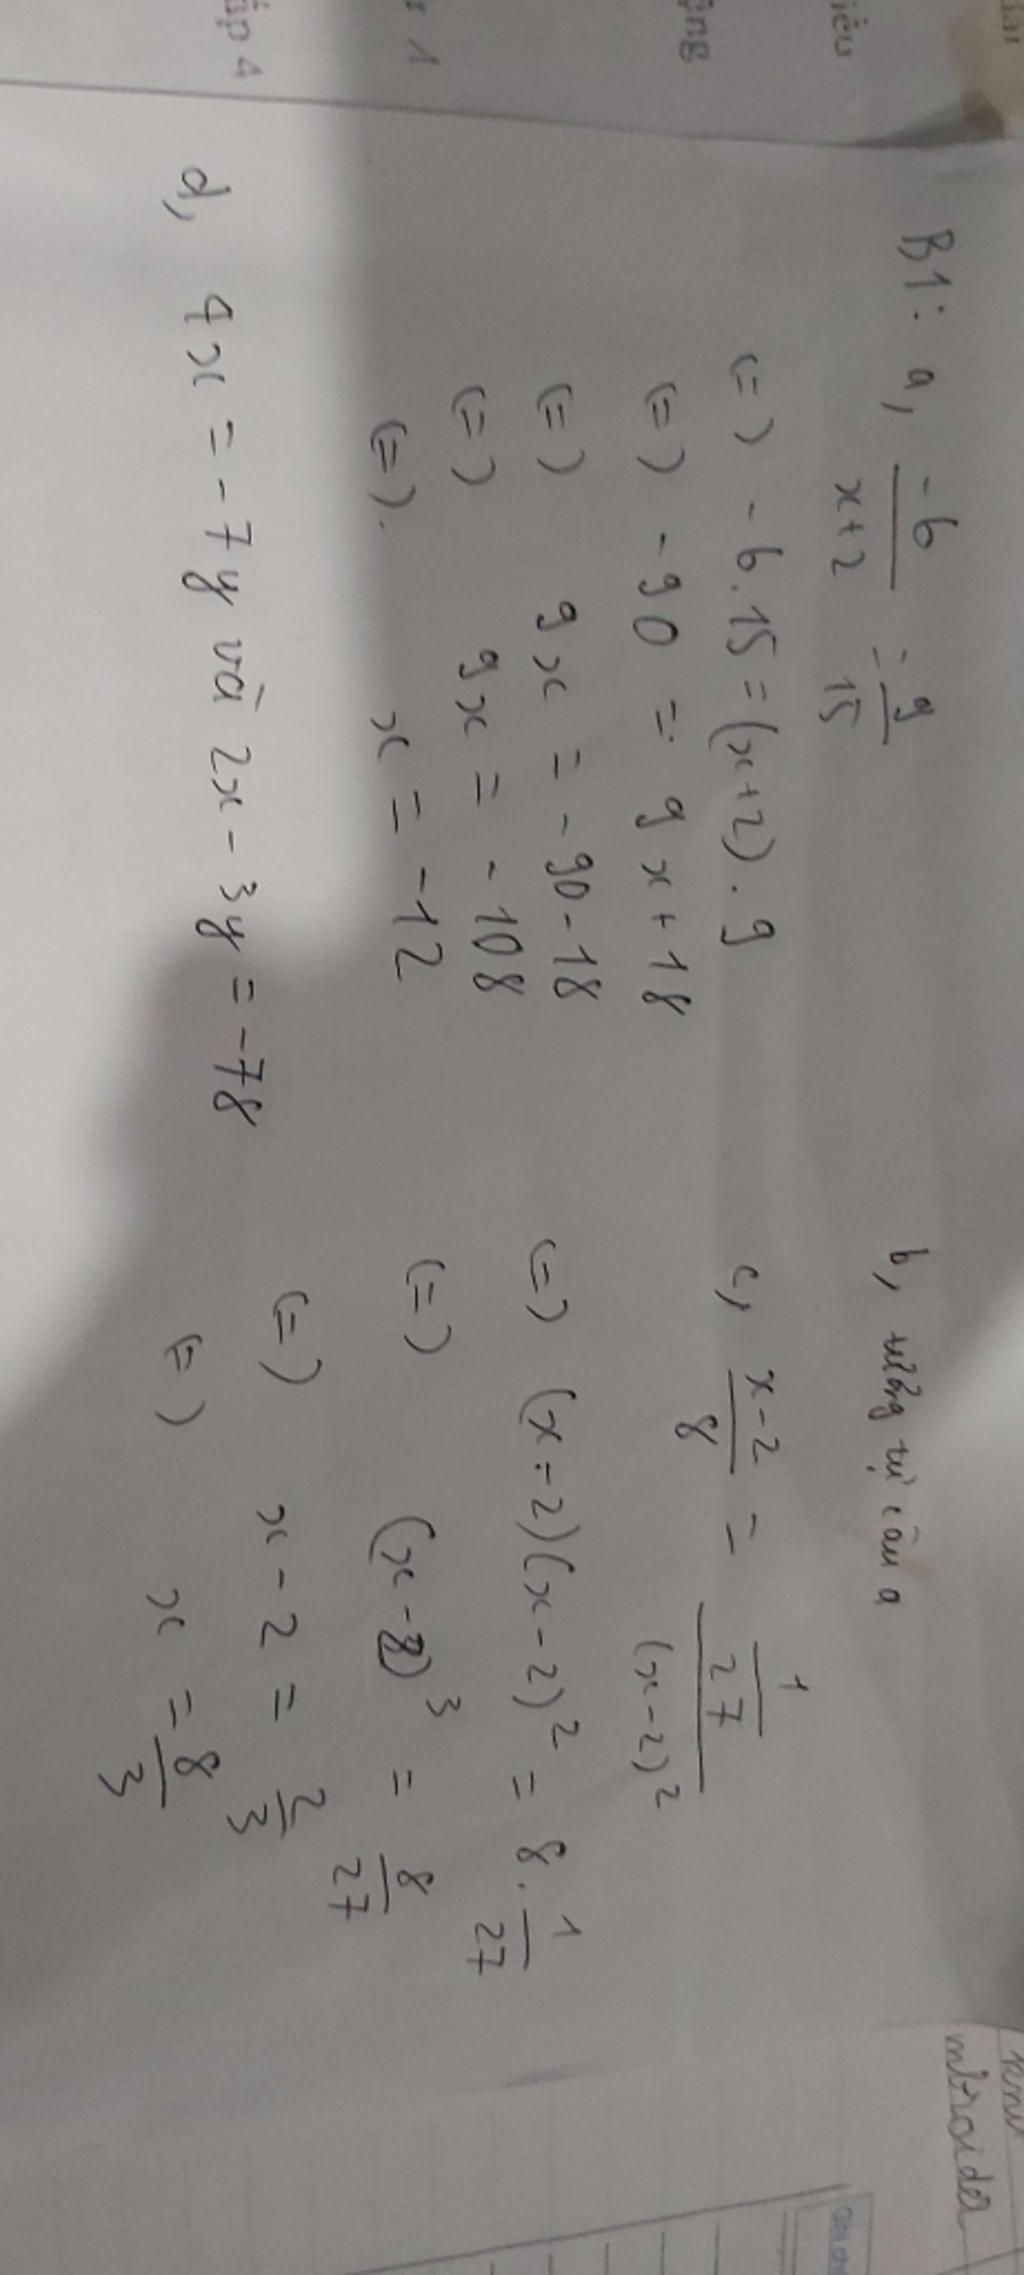 B1: a, -6/x+2 = 9/15
(=) -6.15 = (x+2).9
(=) -90 = 9x+18
(=) 9x = -90-18
(=) 9x = -108
(=). x = -12
b, tương tự câu a
c, x-2/8 = 1/27/(x-2)²
(=) (x-2)(x-2)² = 8.1/27
(=) (x-2)³ = 8/27
(=) x-2 = 2/3
(=) x = 8/3
d, 4x = -7y và 2x-3y = -78
iêu
1
ập 4